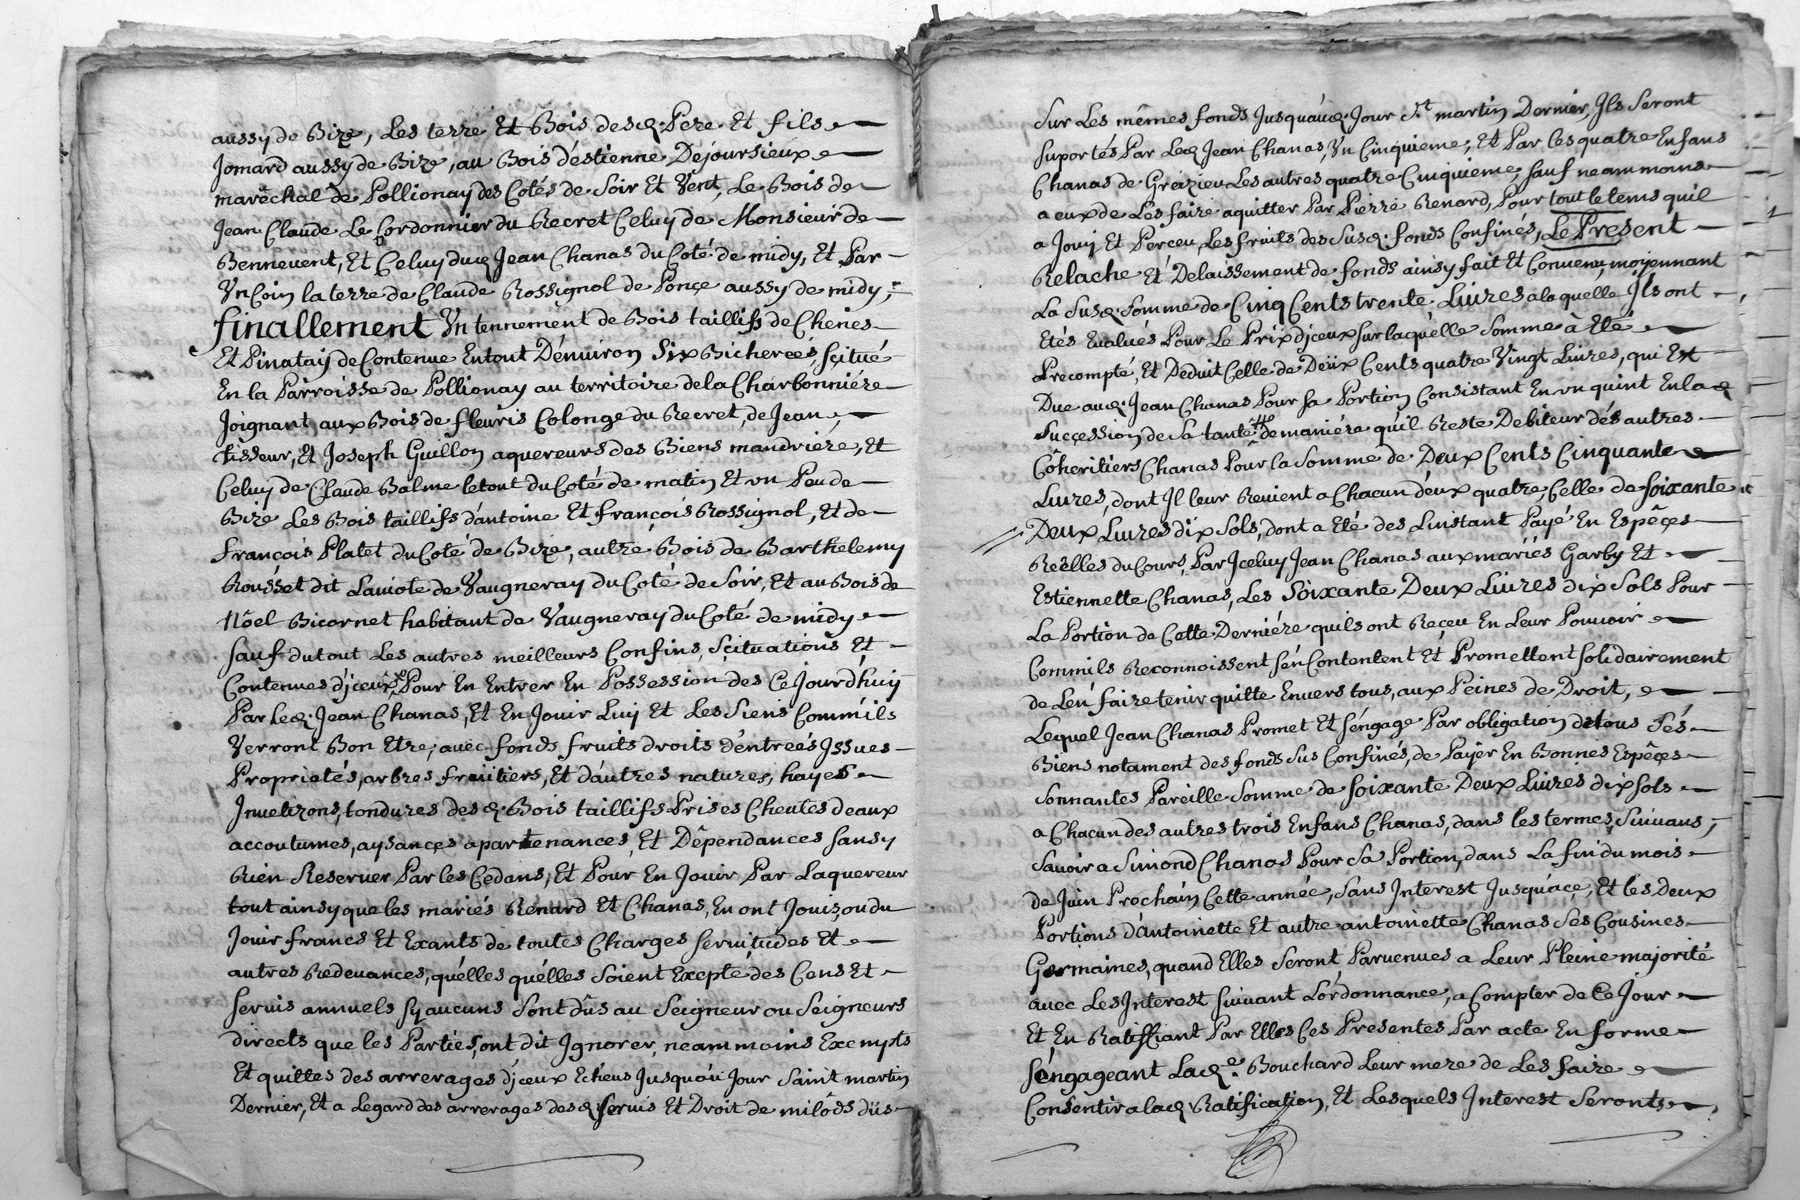 aussy de Bize, Les terre Et Bois desd. Pere Et fils
Jomard aussy de Bize, au Bois d'estienne Dejoursieux
maréchal de Pollionay des Cotés de Soir Et Vent, Le Bois de
Jean Claude Le Cordonnier du Recret Celuy de Monsieur de
Bennevent, Et Celuy dud Jean Chanas du Coté de midy, Et Par
Vn Coin la terre de Claude Rossignol de Ponçe aussy de midy,
finallement Vn tennement de Bois taillifs de Chenes
Et Pinatay de Contenue En tout D'enuiron Six Bicherées, sçitué
En la Parroisse de Pollionay au territoire de la Charbonniére
Joignant aux Bois de fleuris Colonge du Recret, de Jean
tisseur, Et Joseph Guillon aquereurs des Biens mandriere, Et
Celuy de Claude Balme le tout du Coté de matin Et vn Peu de
Bize Les Bois taillifs d'antoine Et françois Rossignol, Et de
françois Platet du Coté de Bize, autre Bois de Barthelemy
Rousset dit Lauiote de Vaugneray du Coté de Soir, Et au Bois de
Nöel Bicornet habitant de Vaugneray du Coté de midy
Sauf du tout Les autres meilleurs Confins, Sçituations Et
Contenues d'jceux, Pour En Entrer En Possession des Ce Jourd'huy
Par Led. Jean Chanas, Et En Jouir Luy Et Les Siens Comm'ils
Verront Bon Etre, avec fonds fruits droits d'entreés Jssues
Proprietés, arbres fruitiers, Et d'autres natures, hayes
Jnuetizons, tondures desd. Bois taillifs Prises Cheutes deaux
accoutumes, aysançes apartenances, Et Dépendances sans y
Rien Reserver Par les Cedans, Et Pour En Jouir Par Laquereur
tout ainsy que les mariés Renard Et Chanas, En ont Jouis, ou du
Jouir francs Et Exants de toutes Charges seruitudes Et
autres Redeuances, qu'elles qu'elles Soient Excepté des Cens Et
Seruis annuels sy aucuns Sont dûs au Seigneur ou Seigneurs
directs que les Partiés, ont dit Jgnorer, neammoins Exempts
Et quittes des arrerages d'jceux Echeus Jusquau Jour Saint martin
Dernier, Et a Legard des arrerages desd. seruis Et Droit de milôds düs
Sur Les mêmes fonds Jusquaud. Jour St martin Dernier, Jls Seront
suportés Par Led Jean Chanas, Vn Cinquieme, Et Par les quatre Enfans
Chanas de Greizieu Les autres quatre Cinquieme sauf neammoins
a eux de Les faire aquitter Par Pierre Renard, Pour tout le tems qu'il
a Jouy Et Perceu, Les fruits des Susd. fonds Confinés, Le Present
Relache Et Delaissement de fonds ainsy fait Et Convenu, moyennant
La Susd. Somme de Cinq Cents trente Liures a la quelle Jls ont
Etés Evalués Pour Le Prix d'jceux sur laquelle Somme à Eté
Precompté, Et Deduit Celle de Deüx Cents quatre Vingt Liures, qui Est
Due aud. Jean Chanas Pour sa Portion Consistant En vn quint En lad
Succession de Sa tante de maniére qu'il Reste Debiteur dés autres
Côheritiers Chanas Pour la Somme de Deux Cents Cinquante
Liures, dont Jl leur Reuient a Chacun d'eux quatre, Celle de soixante
Deux Liures dix Sols, dont a Eté des Linstant Payé En Espêçes
Reëlles du Cours, Par Jceluy Jean Chanas aux mariés Garby Et
Estiennette Chanas, Les Soixante Deux Liures dix Sols Pour
La Portion de Cette Derniére quils ont Reçeu En Leur Pouuoir
Comm'ils Reconnoissent sén Contentent Et Promettent solidairement
de L'en faire tenir quitte Enuers tous, aux Peines de Droit,
Lequel Jean Chanas Promet Et s'éngage Par obligation de tous Sés
Biens notament des fonds Sus Confinés, de Payer En Bonnes Espêçes
Sonnantes Pareille Somme de soixante Deux Liures dix sols
a Chacun des autres trois Enfans Chanas, dans les termes Suiuans,
Sauoir a Simond Chanas Pour Sa Portion, dans La fin du mois
de Juin Prochain Cette année, Sans Jnterest Jusqu'açe, Et les Deux
Portions d'antoinette Et autre antoinette Chanas Ses Cousines
Germaines, quand Elles Seront Paruenues a Leur Pleine majorité
avec Les Jnterest suiuant L'ordonnance, a Compter de Ce Jour
Et En Ratiffiant Par Elles Ces Presentes Par acte En forme
s'éngageant Lad.e Bouchard Leur mere de Les faire
Consentir a lad Ratification, Et Lesquels Jnterest Seronts